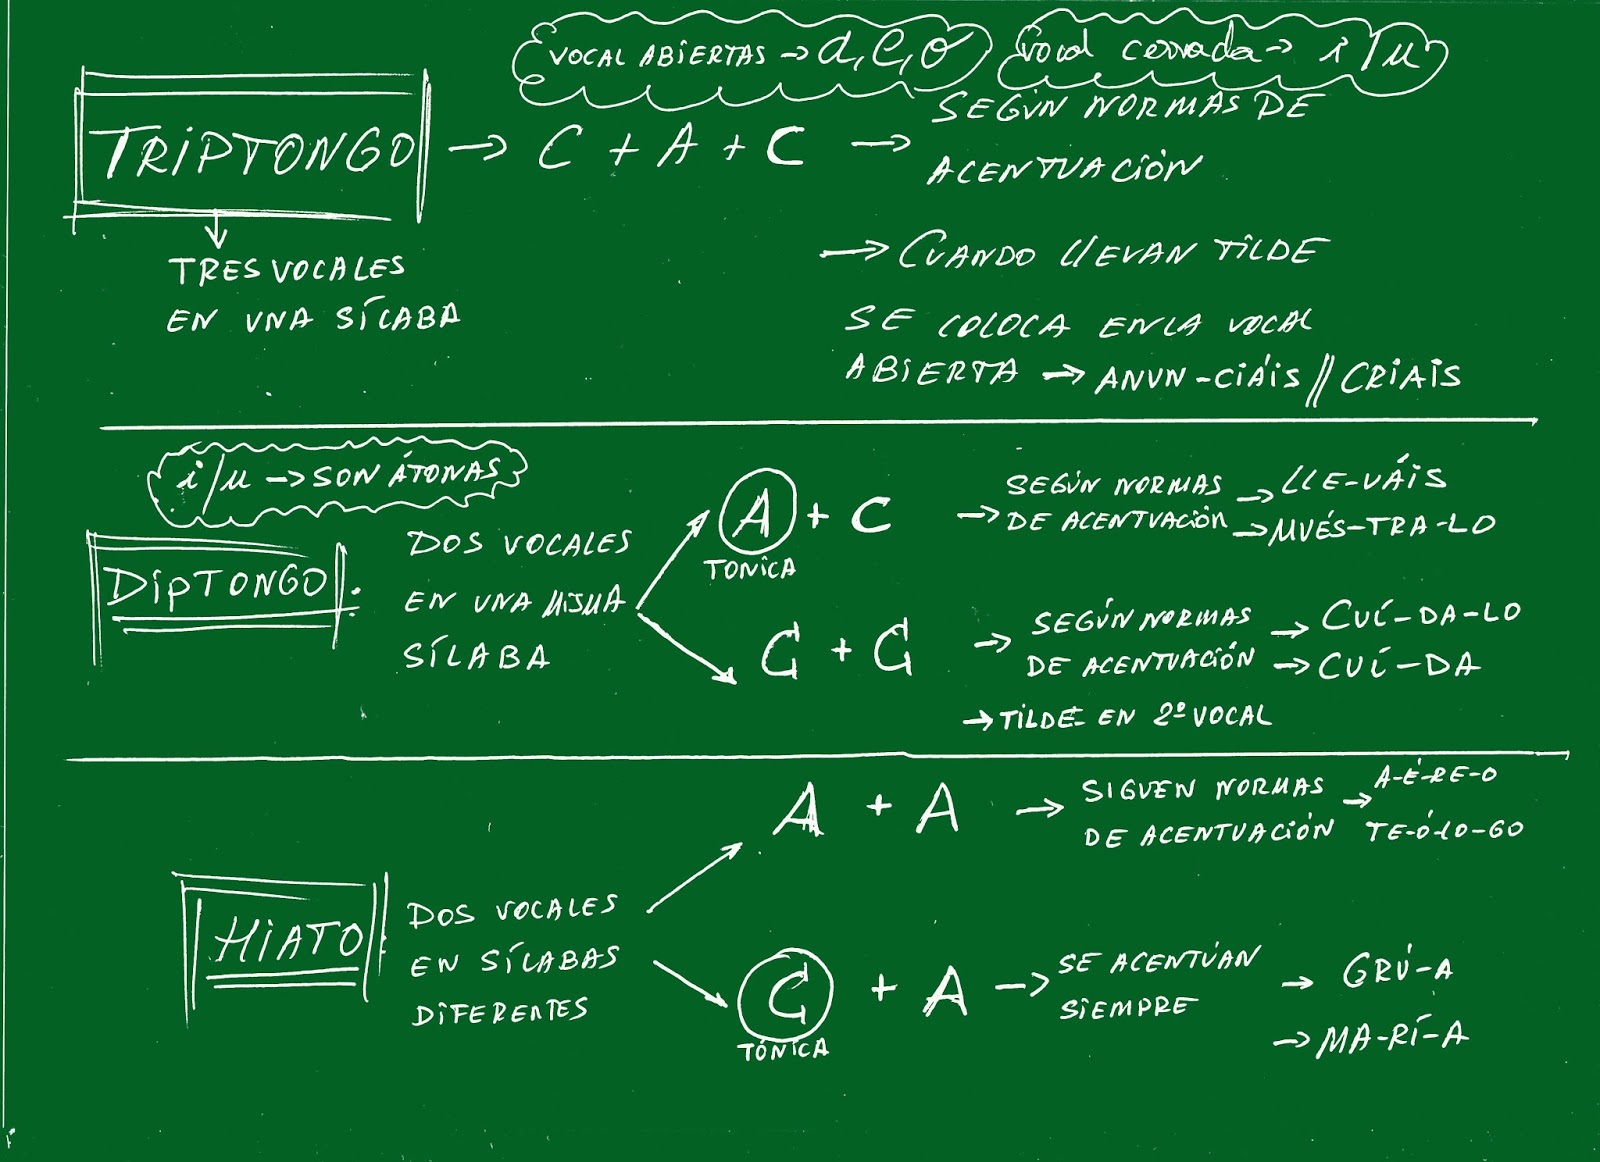 VOCAL ABIERTAS → a, e, o
Vocal cerrada → i / u
TRIPTONGO → C + A + C → SEGÚN NORMAS DE
ACENTUACIÓN
TRES VOCALES
EN UNA SÍLABA
→ CUANDO LLEVAN TILDE
SE COLOCA EN LA VOCAL
ABIERTA → ANUN-CIÁIS // CRIAIS
i / u → SON ÁTONAS
DIPTONGO:
DOS VOCALES
EN UNA MISMA
SÍLABA
A + C
TONICA
→ SEGÚN NORMAS → LLE-VÁIS
DE ACENTUACIÓN → MUÉS-TRA-LO
C + C
→ SEGÚN NORMAS → CUÍ-DA-LO
DE ACENTUACIÓN → CUÍ-DA
→ TILDE EN 2º VOCAL
HIATO:
DOS VOCALES
EN SÍLABAS
DIFERENTES
A + A → SIGUEN NORMAS → A-É-RE-O
DE ACENTUACIÓN TE-Ó-LO-GO
C + A → SE ACENTÚAN → GRÚ-A
TÓNICA
SIEMPRE
→ MA-RÍ-A